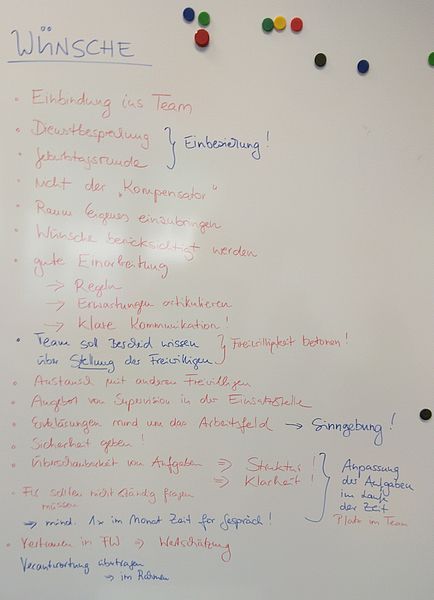 WÜNSCHE
• Einbindung ins Team
• Dienstbesprechung
• Geburtstagsrunde } Einbeziehung!
• nicht der „Kompensator“
• Raum Eigenes einzubringen
• Wünsche berücksichtigt werden
• gute Einarbeitung
→ Regeln
→ Erwartungen artikulieren
→ Klare Kommunikation!
• Team soll Bescheid wissen } Freiwilligkeit betonen!
über Stellung des Freiwilligen
• Austausch mit anderen Freiwilligen
• Angebot von Supervision in der Einsatzstelle
• Erklärungen rund um das Arbeitsfeld → Sinngebung!
• Sicherheit geben!
• Überschaubarkeit von Aufgaben ⇒ Struktur!
⇒ Klarheit!
• FW sollten nicht ständig fragen
müssen
⇒ mind. 1x im Monat Zeit für Gespräch!
} Anpassung
der Aufgaben
im Laufe
der Zeit
Platz im Team
• Vertrauen in FW ⇒ Wertschätzung
Verantwortung übertragen
→ im Rahmen